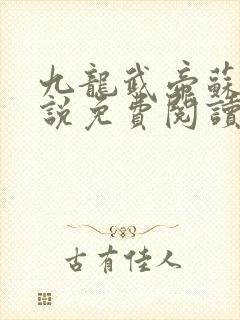 九龍武帝蘇
說免費閱讀
古有佳人